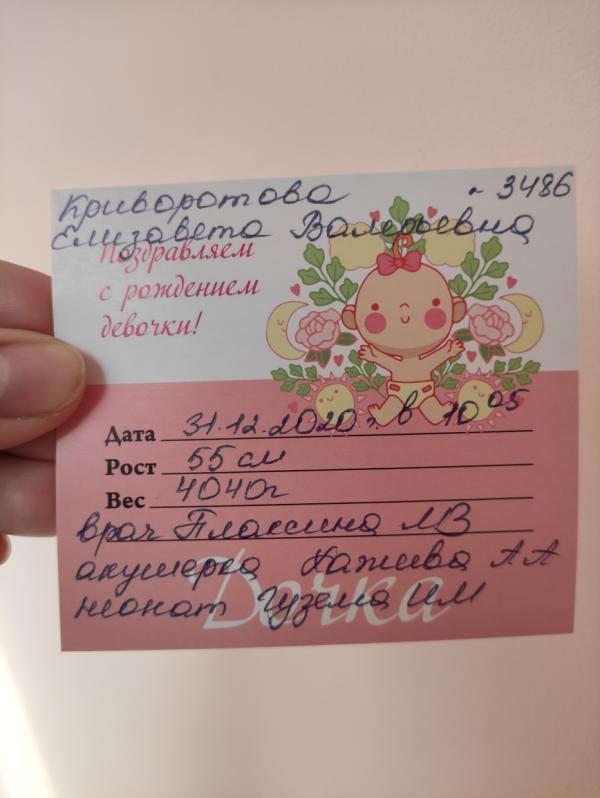 Криворотова № 3486
Елизавета Валерьевна
Поздравляем
с рождением
девочки!
Дата 31.12.2020 г. в 10 05
Рост 55 см
Вес 4040г
врач МВ
акушерка АА
неонат Гузема ИМ
Дочка